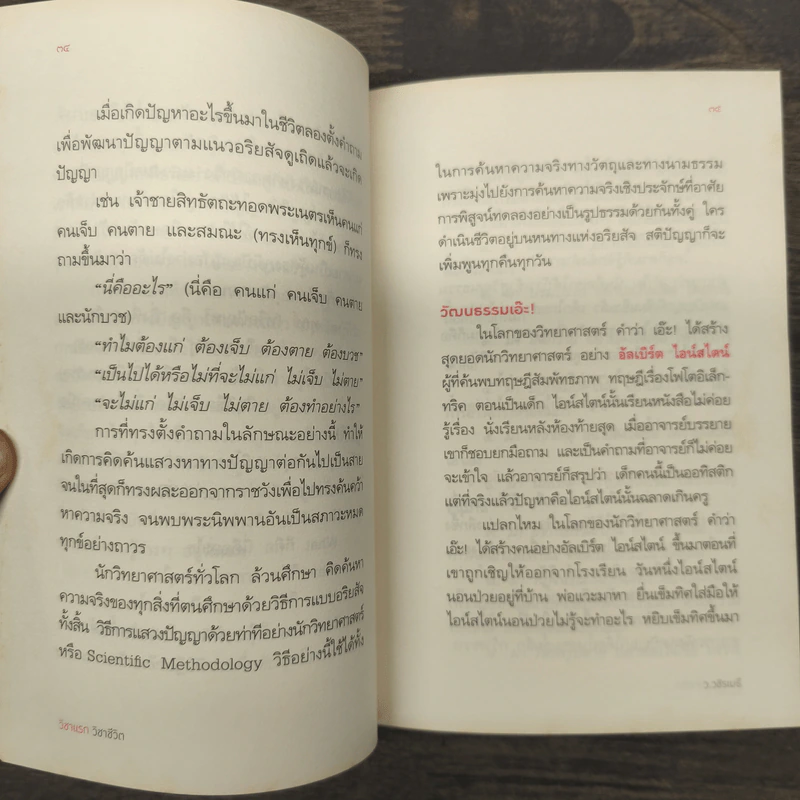 ๓๔
เมื่อเกิดปัญหาอะไรขึ้นมาในชีวิตลองตั้งคำถาม
เพื่อพัฒนาปัญญาตามแนวอริยสัจดูเถิดแล้วจะเกิด
ปัญญา
เช่น เจ้าชายสิทธัตถะทอดพระเนตรเห็นคนแก่
คนเจ็บ คนตาย และสมณะ (ทรงเห็นทุกข์) ก็ทรง
ถามขึ้นมาว่า
“นี่คืออะไร” (นี่คือ คนแก่ คนเจ็บ คนตาย
และนักบวช)
“ทำไมต้องแก่ ต้องเจ็บ ต้องตาย ต้องบวช”
“เป็นไปได้หรือไม่ที่จะไม่แก่ ไม่เจ็บ ไม่ตาย”
“จะไม่แก่ ไม่เจ็บ ไม่ตาย ต้องทำอย่างไร”
การที่ทรงตั้งคำถามในลักษณะอย่างนี้ ทำให้
เกิดการคิดค้นแสวงหาทางปัญญาต่อกันไปเป็นสาย
จนในที่สุดก็ทรงผละออกจากราชวังเพื่อไปทรงค้นคว้า
หาความจริง จนพบพระนิพพานอันเป็นสภาวะหมด
ทุกข์อย่างถาวร
นักวิทยาศาสตร์ทั่วโลก ล้วนศึกษา คิดค้นหา
ความจริงของทุกสิ่งที่ตนศึกษาด้วยวิธีการแบบอริยสัจ
ทั้งสิ้น วิธีการแสวงปัญญาด้วยท่าทีอย่างนักวิทยาศาสตร์
หรือ Scientific Methodology วิธีอย่างนี้ใช้ได้ทั้ง
วิชาแรก วิชาชีวิต
๓๕
ในการค้นหาความจริงทางวัตถุและทางนามธรรม
เพราะมุ่งไปยังการค้นหาความจริงเชิงประจักษ์ที่อาศัย
การพิสูจน์ทดลองอย่างเป็นรูปธรรมด้วยกันทั้งคู่ ใคร
ดำเนินชีวิตอยู่บนหนทางแห่งอริยสัจ สติปัญญาก็จะ
เพิ่มพูนทุกคืนทุกวัน
วัฒนธรรมเอ๊ะ!
ในโลกของวิทยาศาสตร์ คำว่า เอ๊ะ! ได้สร้าง
สุดยอดนักวิทยาศาสตร์ อย่าง อัลเบิร์ต ไอน์สไตน์
ผู้ที่ค้นพบทฤษฎีสัมพัทธภาพ ทฤษฎีเรื่องโฟโตอิเล็ก-
ทริค ตอนเป็นเด็ก ไอน์สไตน์นั้นเรียนหนังสือไม่ค่อย
รู้เรื่อง นั่งเรียนหลังห้องท้ายสุด เมื่ออาจารย์บรรยาย
เขาก็ชอบยกมือถาม และเป็นคำถามที่อาจารย์ก็ไม่ค่อย
จะเข้าใจ แล้วอาจารย์ก็สรุปว่า เด็กคนนี้เป็นออทิสติก
แต่ที่จริงแล้วปัญหาคือไอน์สไตน์นั้นฉลาดเกินครู
แปลกไหม ในโลกของนักวิทยาศาสตร์ คำว่า
เอ๊ะ! ได้สร้างคนอย่างอัลเบิร์ต ไอน์สไตน์ ขึ้นมาตอนที่
เขาถูกเชิญให้ออกจากโรงเรียน วันหนึ่งไอน์สไตน์
นอนป่วยอยู่ที่บ้าน พ่อแวะมาหา ยื่นเข็มทิศใส่มือให้
ไอน์สไตน์นอนป่วยไม่รู้จะทำอะไร หยิบเข็มทิศขึ้นมา